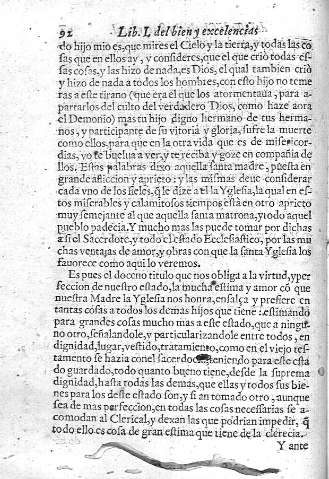 92 Lib. I. del bien y excelencias
do hijo mio es, que mires el Cielo y la tierra, y todas las co
sas que en ellos ay, y consideres, que el que criò todas es-
sas cosas, y las hizo de nada, es Dios, el qual tambien criò
y hizo de nada a todos los hombres, con esto hijo no teme
ras a este tirano (que era el que los atormentaua, para a-
partarlos del culto del verdadero Dios, como haze aora
el Demonio) mas tu hijo digno hermano de tus herma-
nos, y participante de su vitoria y gloria, sufre la muerte
como ellos, para que en la otra vida que es de misericor-
dias, yo te buelua a ver, y te reciba y goze en compañia de
llos. Estas palabras dixo aquella santa madre, puesta en
grande afliccion y aprieto: y las mismas deue considerar
cada vno de los fieles, q̃ le dize a el la Yglesia, la qual en es-
tos miserables y calamitosos tiempos està en otro aprieto
muy semejante al que aquella santa matrona, y todo aquel
pueblo padecia. Y mucho mas las puede tomar por dichas
a si el Sacerdote, y todo el estado Ecclesiastico, por las mu
chas ventajas de amor, y obras con que la santa Yglesia los
fauorece como aqui lo veremos.
Es pues el doceno titulo que nos obliga a la virtud, y per
feccion de nuestro estado, la mucha estima y amor cõ que
nuestra Madre la Yglesia nos honra, ensalça y prefiere en
tantas cosas a todos los demas hijos que tiene: estimando
para grandes cosas mucho mas a este estado, que a ningu
no otro, señalandole, y particularizandole entre todos, en
dignidad, lugar, vestido, tratamiento, como en el viejo tes-
tamento se hazia con el sacerdocio, teniendo para este esta
do guardado, todo quanto bueno tiene, desde la suprema
dignidad, hasta todas las demas, que ellas y todos sus bie-
nes para los deste estado son, y si an tomado otro, aunque
sea de mas perfeccion, en todas las cosas necessarias se a-
comodan al Clerical, y dexan las que podrian impedir, q̃
todo ello es cosa de gran estima que tiene de la clerecia.
Y ante